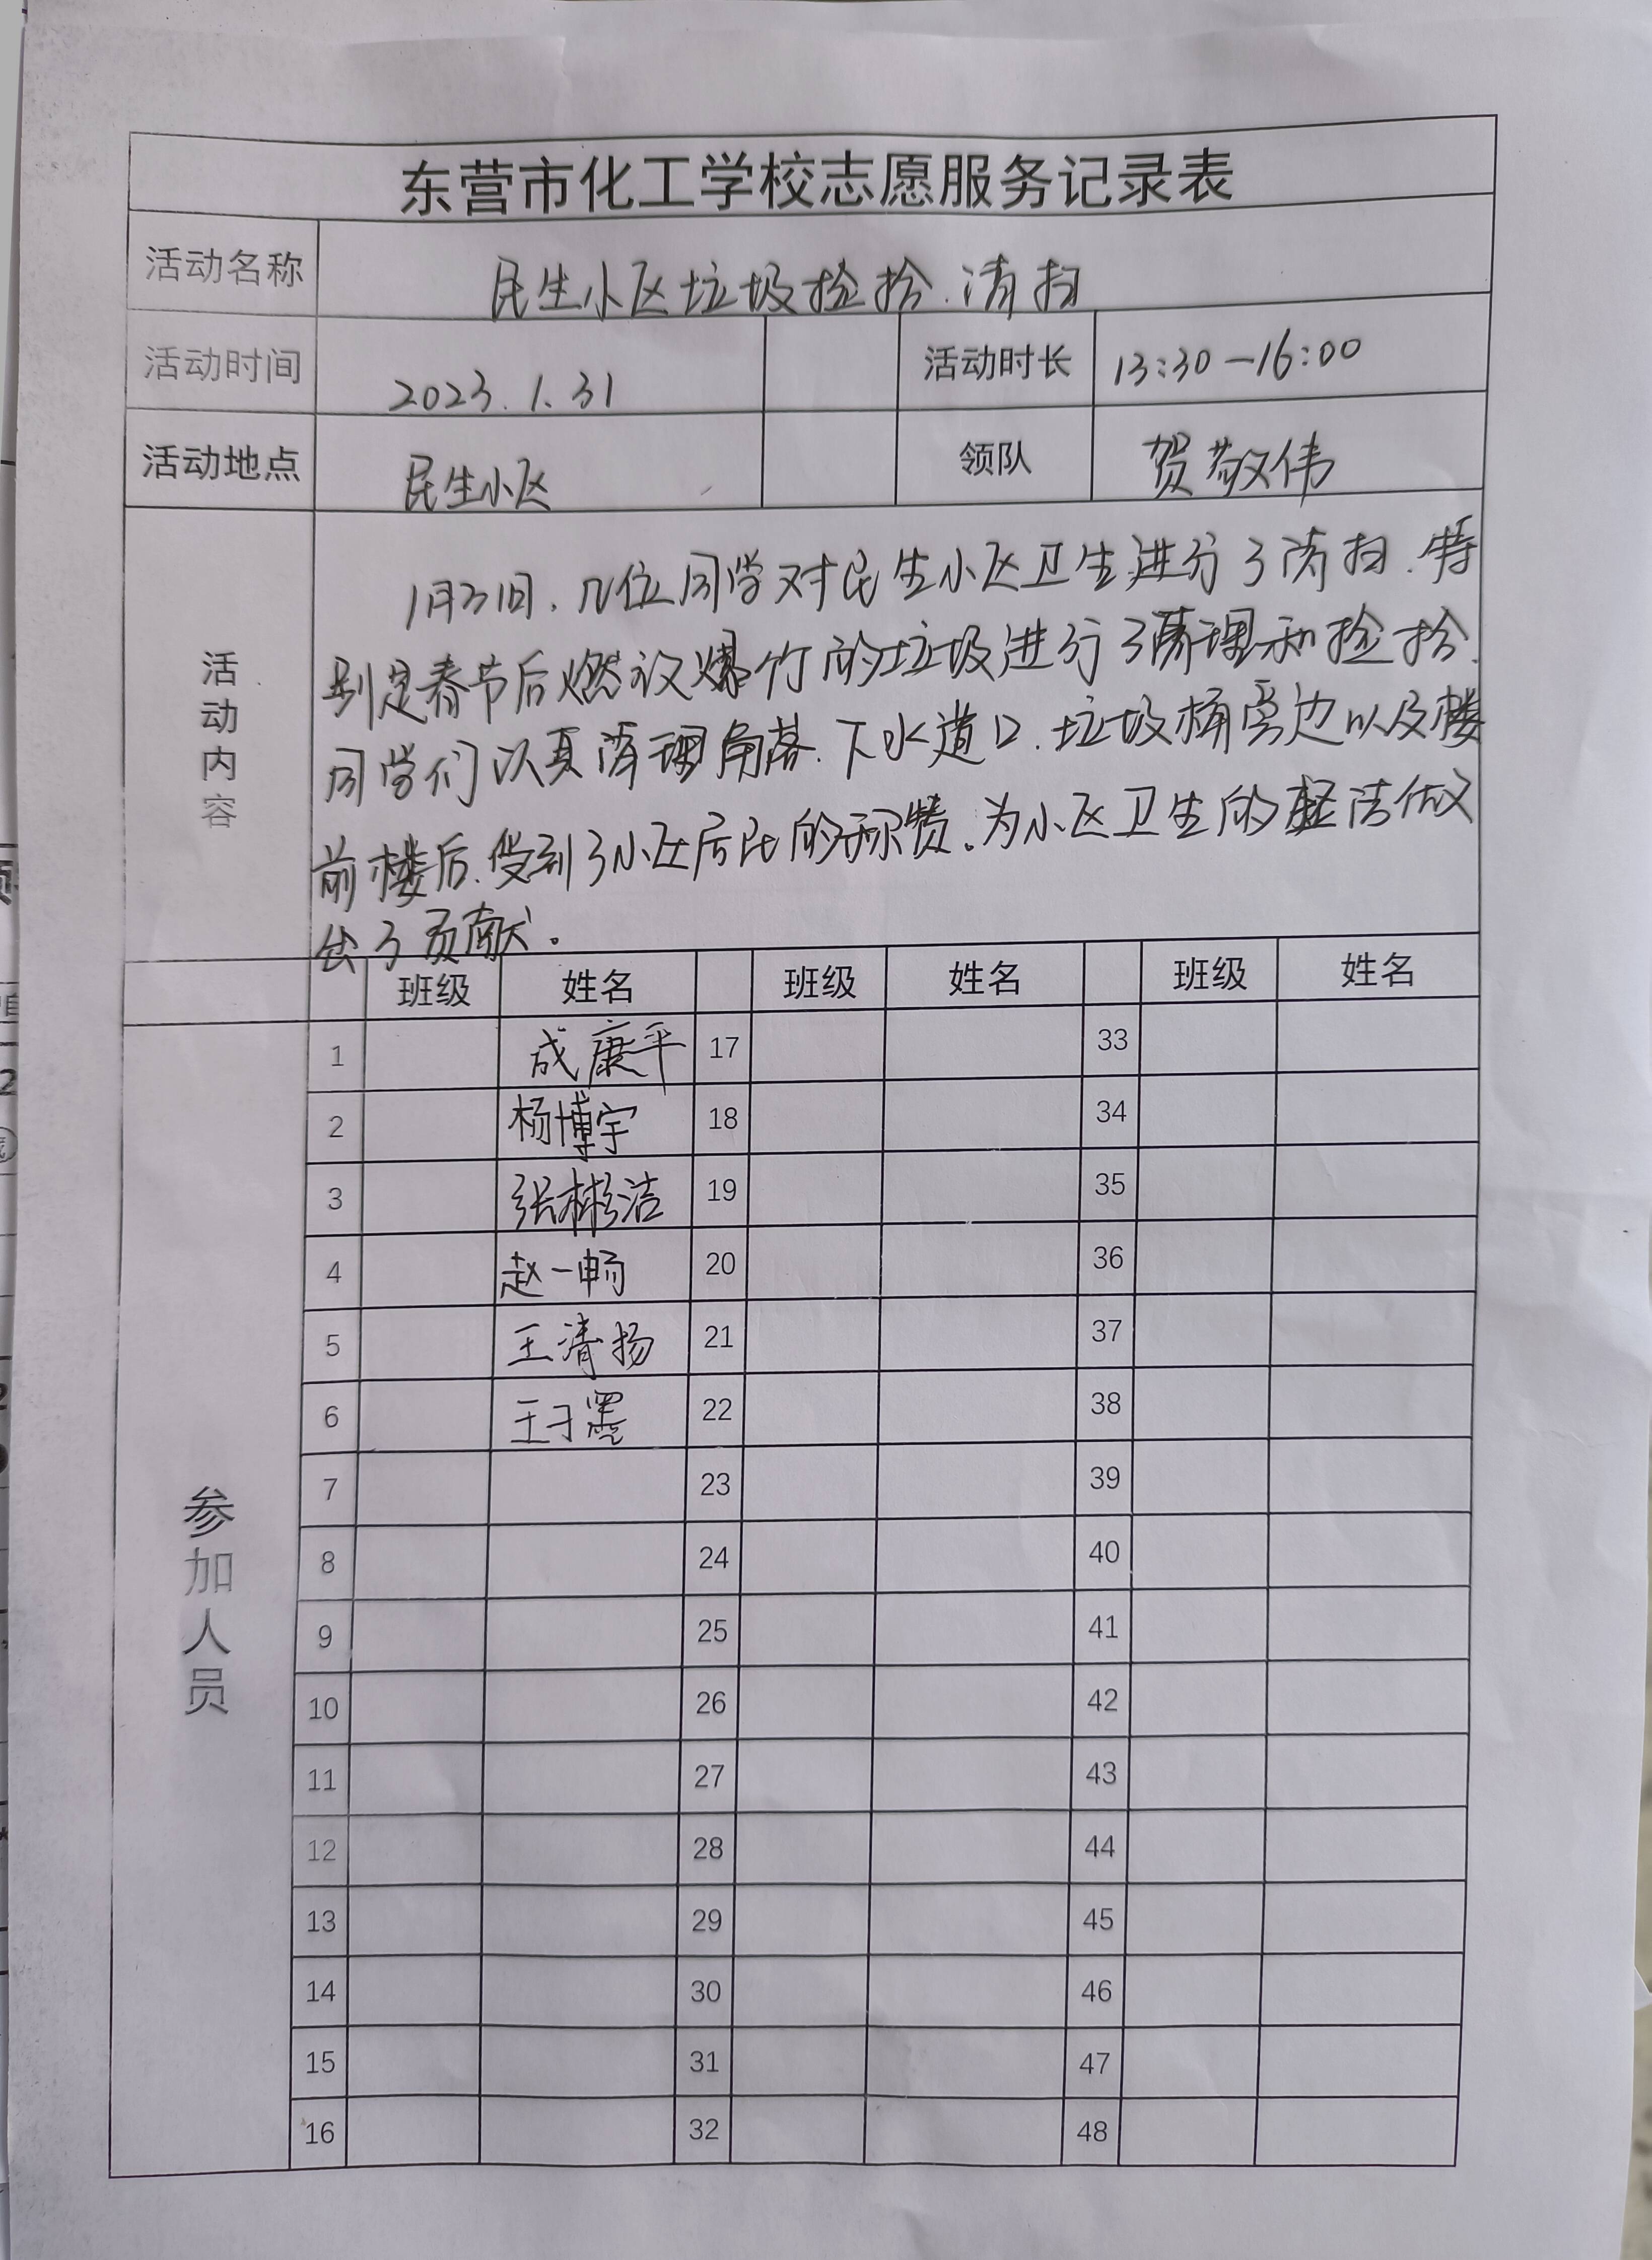 东营市化工学校志愿服务记录表
活动名称 民生小区垃圾捡拾.清扫
活动时间 2023.1.31 活动时长 13:30—16:00
活动地点 民生小区 领队 贺敬伟
活动内容
1月31日,几位同学对民生小区卫生进行了清扫.特
别是春节后燃放爆竹的垃圾进行了清理和捡拾.
同学们认真清理角落.下水道口.垃圾桶旁边以及楼
前楼后.受到了小区居民的称赞。为小区卫生的整洁做
出了贡献。
班级 姓名 班级 姓名 班级 姓名
参加人员
1 成康平 17 33
2 杨博宇 18 34
3 张彬洁 19 35
4 赵一畅 20 36
5 王清扬 21 37
6 王子墨 22 38
7 23 39
8 24 40
9 25 41
10 26 42
11 27 43
12 28 44
13 29 45
14 30 46
15 31 47
16 32 48